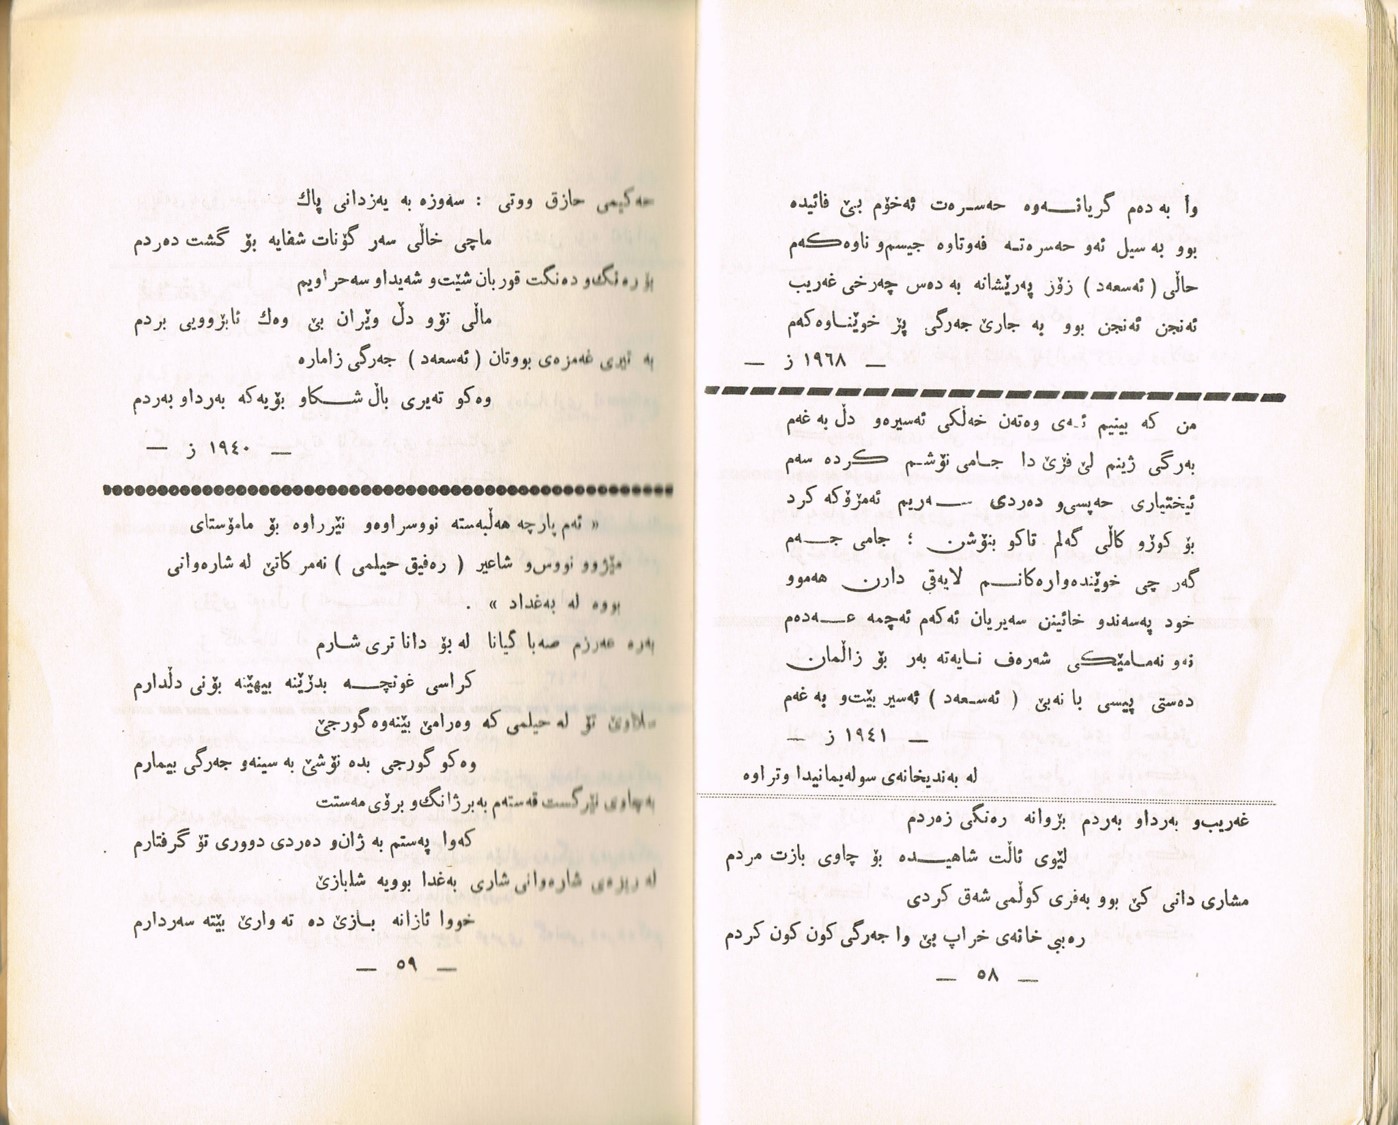 وا بەدەم گریانەوە حەسرەت ئەخۆم بێ فائیدە
بوو بە سیل ئەو حەسرەتە فەوتاوە جیسم‌و ناوەکەم
حاڵی ( ئەسعەد ) زۆر پەرێشانە بەدەس چەرخی غەریب
ئەنجن ئەنجن بوو بە جارێ جەرگی پڕ خوێناوەکەم
— ١٩٦٨ ز —
من کە بینیم ئەی وەتەن خەڵکی ئەسیرەو دڵ بەغەم
بەرگی ژینم لێ فڕێ دا جامی نۆشم کردە سەم
ئیختیاری حەپسی‌و دەردی سەریم ئەمڕۆکە کرد
بۆ کوڕو کاڵی گەلم تاکو بنۆشن ؛ جامی جەم
گەر چی خوێندەوارەکانم لایەقی دارن هەموو
خود پەسەندو خائینن سەیریان ئەکەم ئەچمە عەدەم
نەو نەمامێکی شەرەف نایەتە بەر بۆ زاڵمان
دەستی پیسی با نەبێ ( ئەسعەد ) ئەسیر بێت‌و بەغەم
— ١٩٤١ ز —
لە بەندیخانەی سولەیمانیدا وتراوە
غەریب‌و بەرداو بەردم بڕوانە رەنگی زەردم
لێوی ئاڵت شاهیدە بۆ چاوی بازت مردم
مشاری دانی کێ بوو بەفری کوڵمی شەق کردی
رەببی خانەی خراپ بێ وا جەرگی کون کون کردم
— ٥٨ —
حەکیمی حازق ووتی : سەوزە بە یەزدانی پاك
ماچی خاڵی سەر گۆنات شفایە بۆ گشت دەردم
بۆ رەنگ‌و دەنگت قوربان شێت‌و شەیداو سەحراویم
ماڵی نۆو دڵ وێران بێ وەك ئابڕوویی بردم
بە تیری غەمزەی بووتان ( ئەسعەد ) جەرگی زامارە
وەکو تەیری باڵ شکاو بۆیەکە بەرداو بەردم
— ١٩٤٠ ز —
« ئەم پارچە هەڵبەستە نووسراوەو نێرراوە بۆ مامۆستای
مێژوو نووس‌و شاعیر ( رەفیق حیلمی ) نەمر کاتێ لە شارەوانی
بووە لە بەغداد » .
بەرە عەرزم صەبا گیانا لەبۆ دانا تری شارم
کراسی غونچە بدڕێنە بیهێنە بۆنی دڵدارم
سلاوێ تۆ لە حیلمی کە وەرامێ بێنەوە گورجێ
وەکو گورجی بدە نۆشێ بە سینەو جەرگی بیمارم
بەچاوی نێرگست قەستەم بەبرژانگ‌و برۆی مەستت
کەوا پەستم بە ژان‌و دەردی دووری تۆ گرفتارم
لە رێزەی شارەوانی شاری بەغدا بوویە شلبازێ
خووا ئازانە بازێ دە تەوارێ بێتە سەردارم
— ٥٩ —